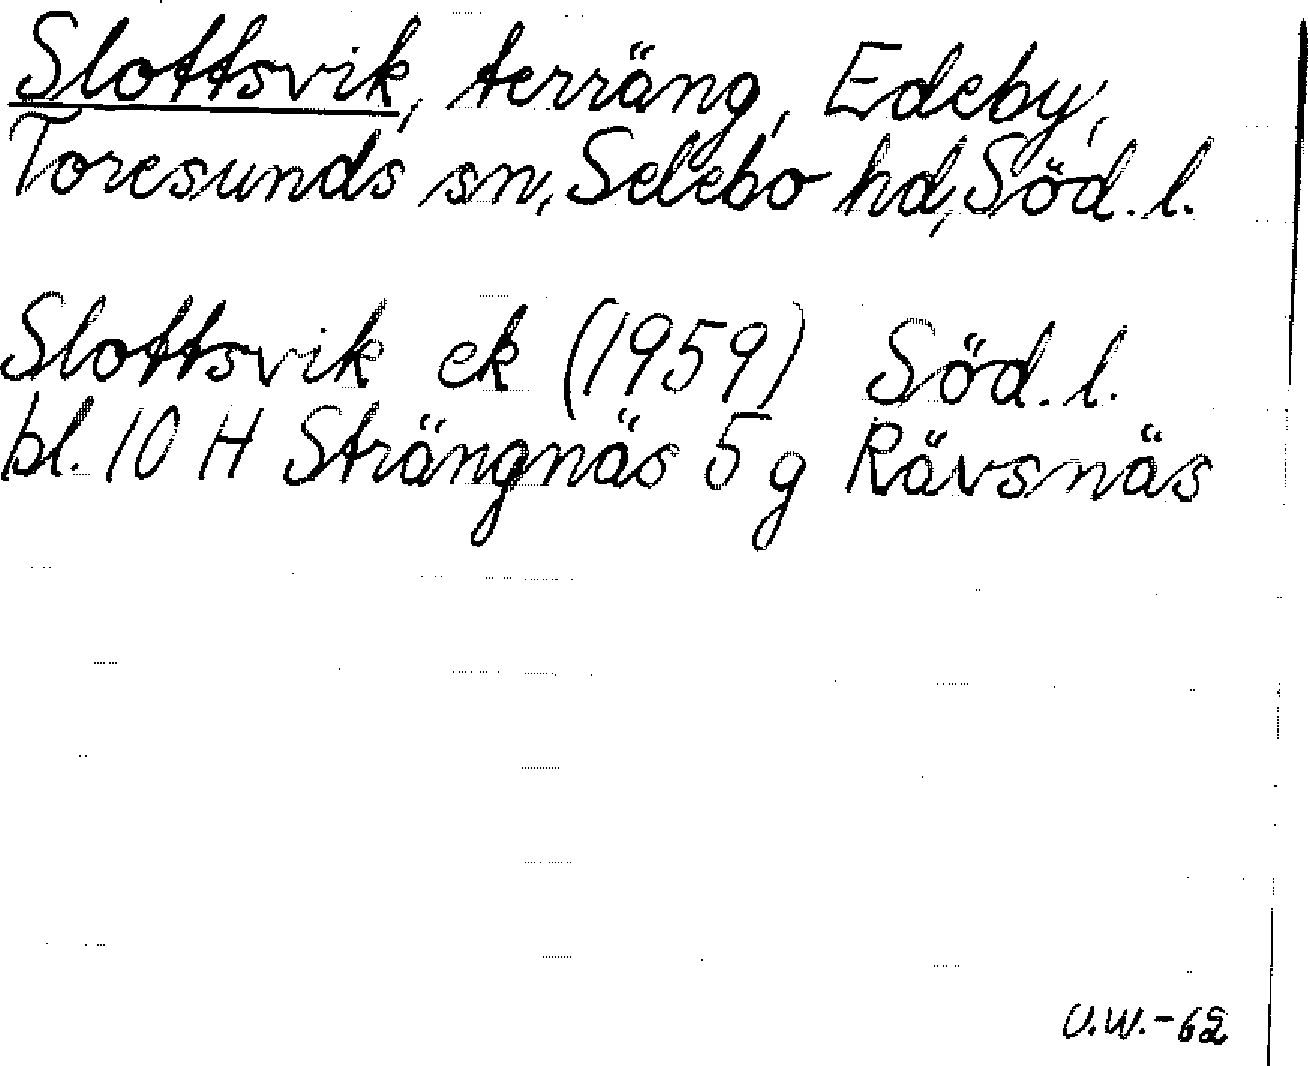 Slottsvik, terräng, Edeby,
Toresunds sn, Selebo hd, Söd. l.
Slottsvik ek (1959) Söd. l.
bl. 10 H Strängnäs 5 g Rävsnäs
U.W.-62